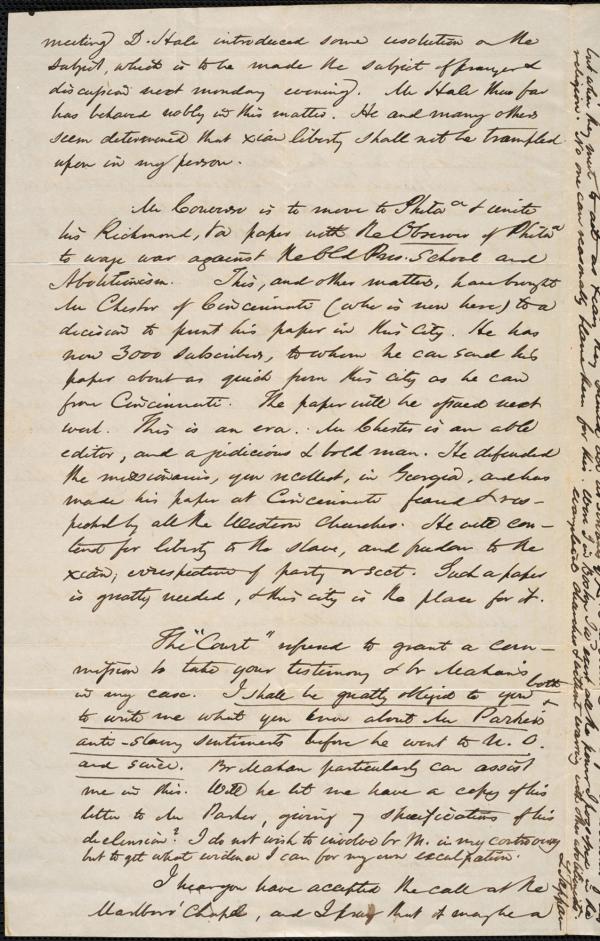 meeting D. Hale introduced some resolution on the
subject, which is to be made the subject of prayer &
discussion next monday evening. Mr Hale thus far
has behaved nobly in this matter. He and many others
seem determined that xian liberty shall not be trampled
upon in my person.
Mr Converse is to move to Phila^a & unite
his Richmond, Va paper with the Observer of Phila^a
to wage war against the Old Pres. School and
Abolitionism. This, and other matters, have brought
Mr Chester of Cincinnati (who is now here) to a
decision to print his paper in this City. He has
now 3000 subscribers, to whom he can send his
paper about as quick from this city as he can
from Cincinnati. The paper will be issued next
week. This is an era. Mr Chester is an able
editor, and a judicious & bold man. He defended
the missionaries, you recollect, in Georgia, and has
made his paper at Cincinnati feared & res-
pected by all the Western Churches. He will con-
tend for liberty to the slave, and freedom to the
xian, irrespective of party or sect. Such a paper
is greatly needed, & this city is the place for it.
The "Court" refused to grant a com-
mission to take your testimony & br Mahan's
in my case. I shall be greatly obliged to you both
to write me what you know about Mr Parker's
anti-slavery sentiments before he went to N. O.
and since. Br Mahan particularly can assist
me in this. Will he let me have a copy of his
letter to Mr Parker, giving 7 specifications of his
declension? I do not wish to involve br M. in my controversy
but to get what evidence I can for my own exculpation.
I hear you have accepted the call at the
Marlboro' Chapel, and I pray that it may be a
religion. No one can reasonably blame them for this.
L. Tappan